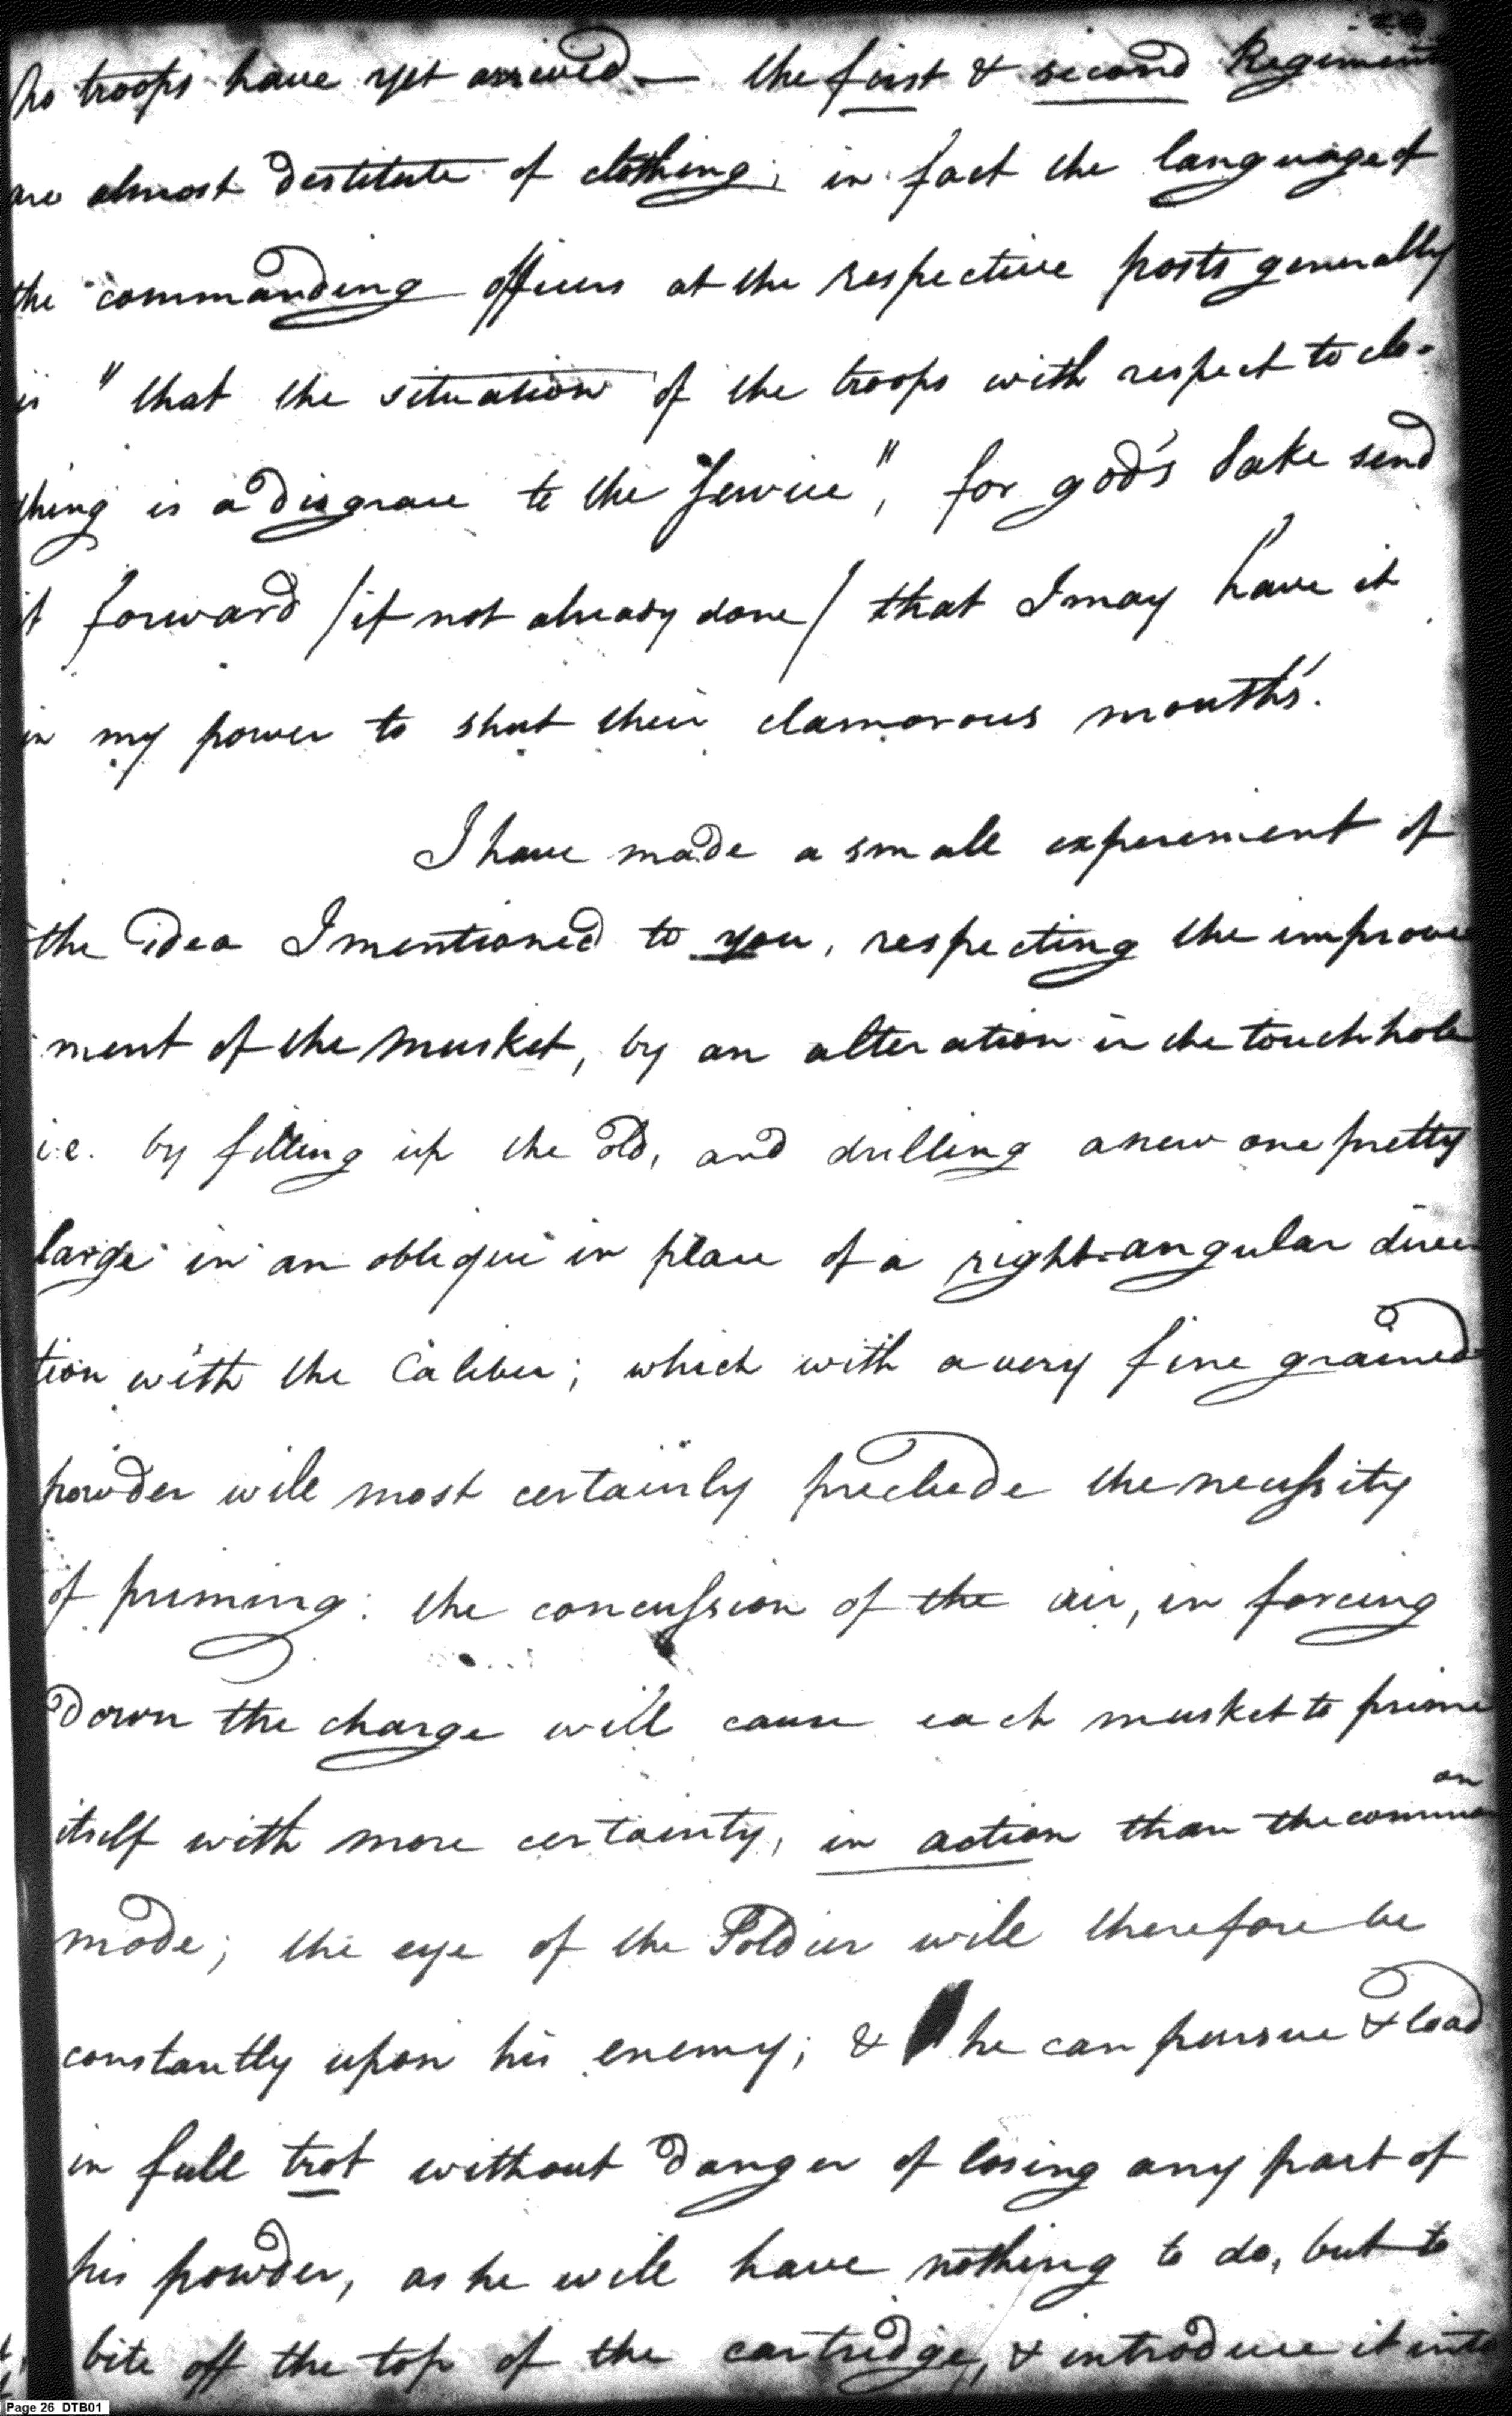 No troops have yet arrived — the first & second Regiments
are almost destitute of clothing; in fact the language of
the commanding officers at the respective posts generally
is "that the situation of the troops with respect to clo-
thing is a disgrace to the service", for god's sake send
it forward /if not already done/ that I may have it
in my power to shut their clamorous mouth's.
I have made a small experiment of
the idea I mentioned to you, respecting the improve
ment of the musket, by an alteration in the touch hole
i.e. by filling up the old, and drilling a new one pretty
large in an oblique in place of a right-angular direc-
tion with the Caliber; which with a very fine grained
powder will most certainly preclude the necessity
of priming: the concussion of the air, in forcing
down the charge will cause each musket to prime
itself with more certainty, in action than the common
on
mode; the eye of the Soldier will therefore be
constantly upon his enemy; & he can pursue & load
in full trot without danger of losing any part of
his powder, as he will have nothing to do, but to
bite off the top of the cartridge, & introduce it into
Page 26 DTB01